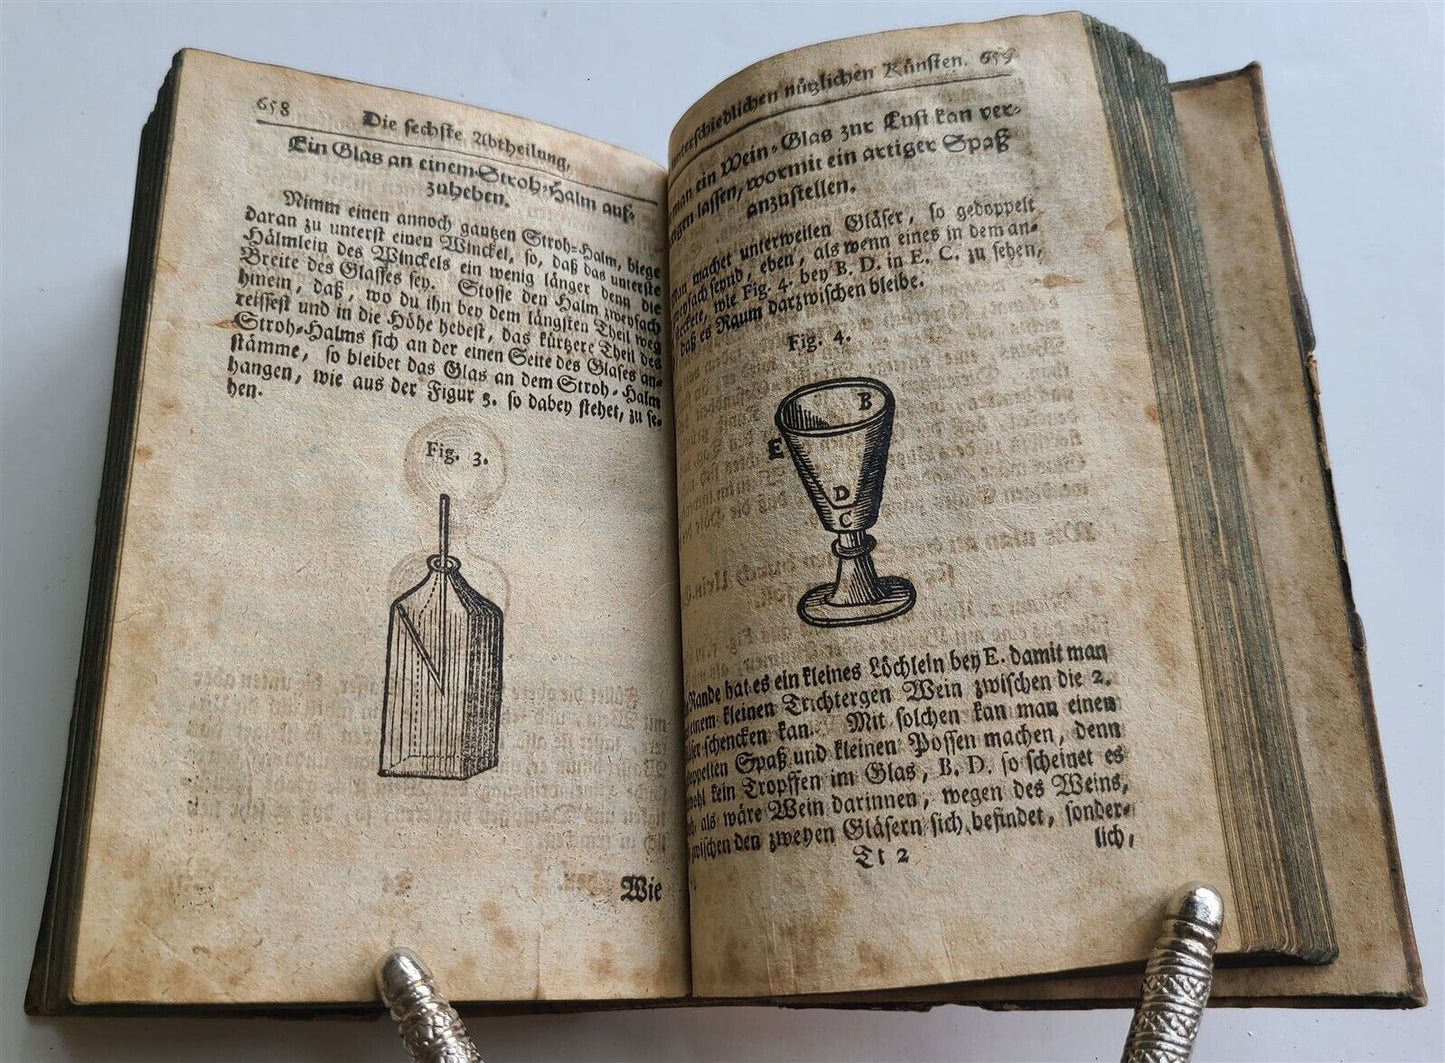 658
Die sechste Abtheilung,
Ein Glas an einem Stroh-Halm auf-
zuheben.
Nimm einen annoch gantzen Stroh-Halm, biege
daran zu unterst einen Winckel, so, daß das unterste
Hälmlein des Winckels ein wenig länger denn die
Breite des Glasses sey. Stosse den Halm zweyfach
hinein, daß, wo du ihn bey dem längsten Theil weg
reissest und in die Höhe hebest, das kürtzere Theil des
Stroh-Halms sich an der einen Seite des Glases an-
stämme, so bleibet das Glas an dem Stroh-Halm
hangen, wie aus der Figur 3. so dabey stehet, zu se-
hen.
Fig. 3.
Wie
unterschiedlichen nützlichen Künsten. 659
man ein Wein-Glas zur Lust kan ver-
lassen, wormit ein artiger Spaß
anzustellen.
Man machet unterweilen Gläser, so gedoppelt
seynd, eben, als wenn eines in dem an-
wie Fig. 4. bey B. D. in E. C. zu sehen,
daß es Raum darzwischen bleibe.
Fig. 4.
B
E
D
C
Rande hat es ein kleines Löchlein bey E. damit man
einem kleinen Trichtergen Wein zwischen die 2.
schencken kan. Mit solchen kan man einen
Spaß und kleinen Possen machen, denn
kein Tropffen im Glas, B. D. so scheinet es
als wäre Wein darinnen, wegen des Weins,
zwischen den zweyen Gläsern sich befindet, sonder-
lich,
Tt 2